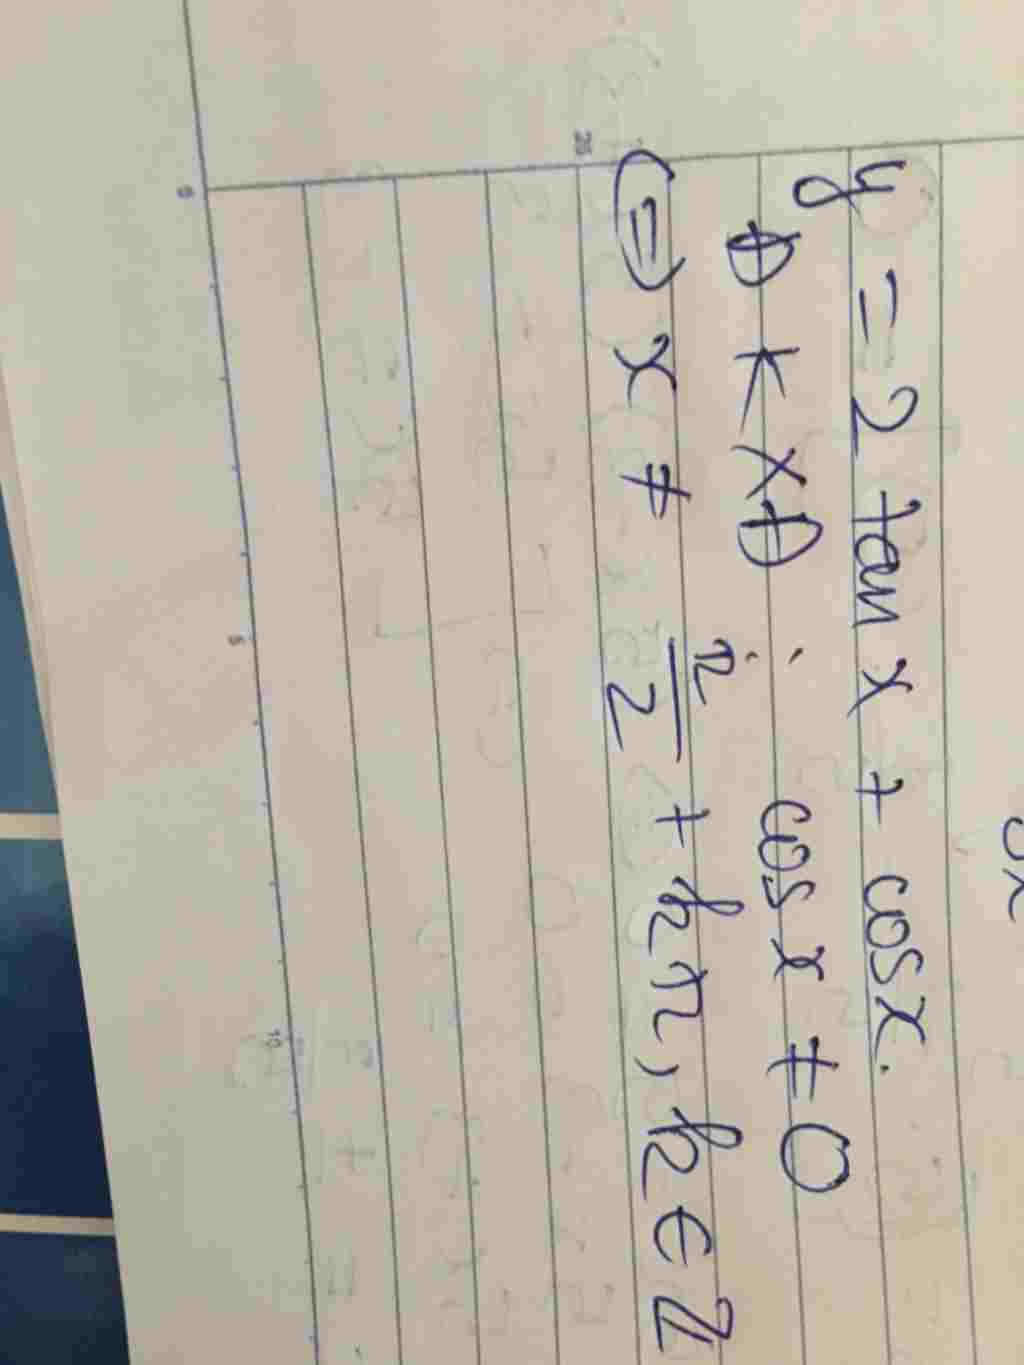 y = 2 tan x + cosx.
ĐKXĐ : cos x ≠ 0
⇔ x ≠ π/2 + kπ, k ∈ ℤ